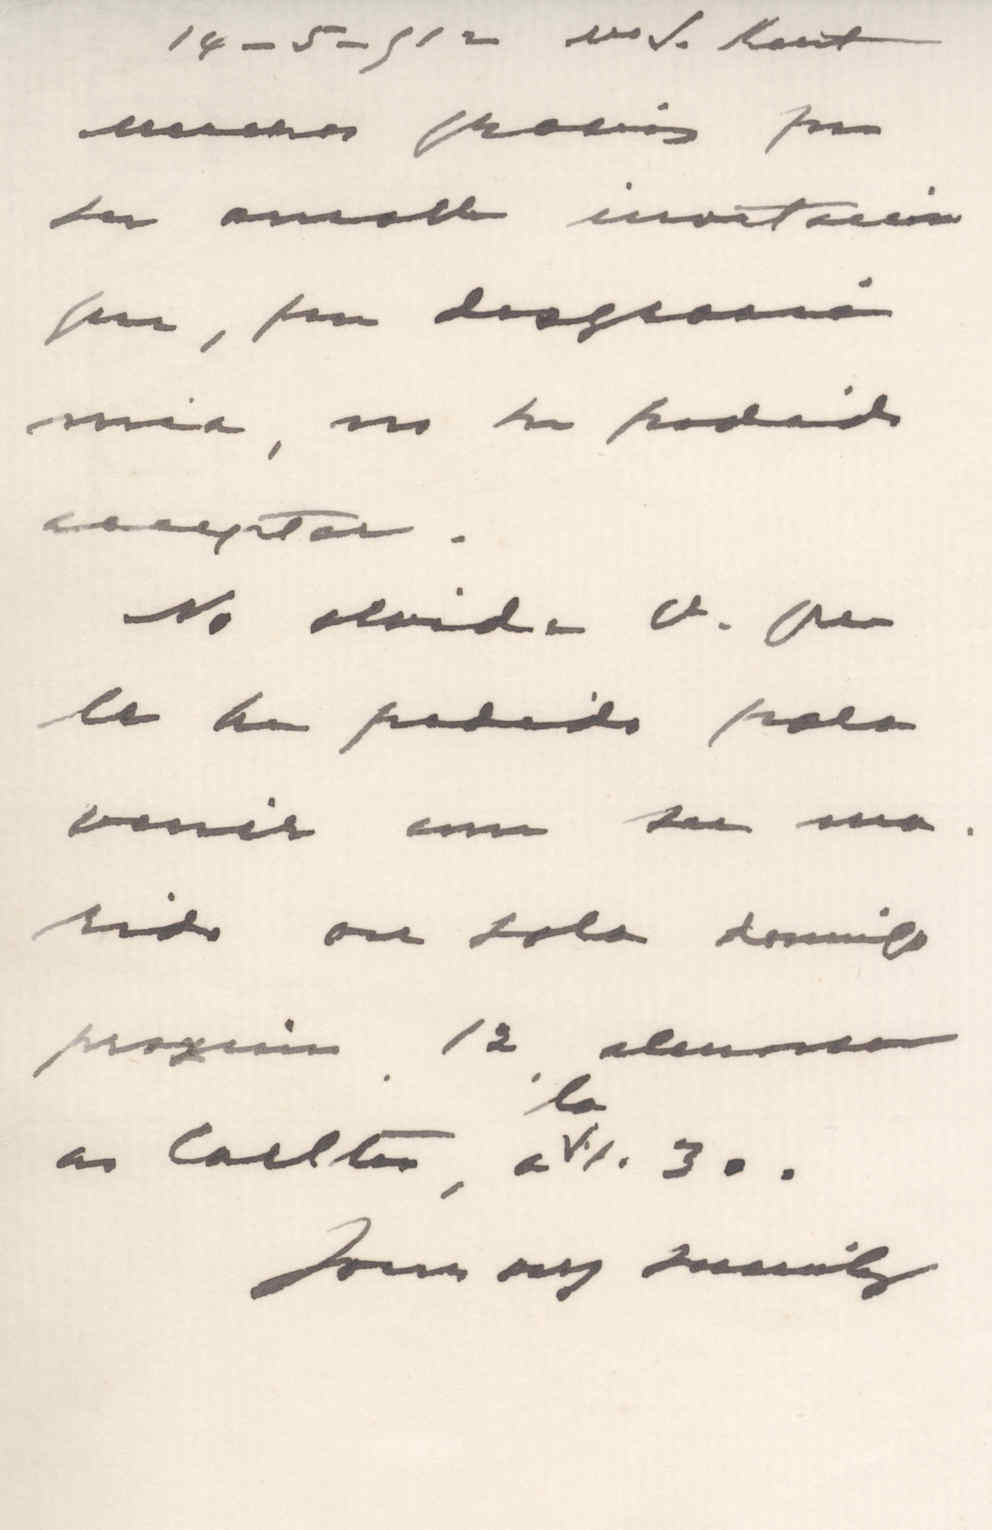 14-5-912 Kent
muchas gracias por
su amable invitacion
que, por desgracia
mia, no he podido
acceptar.
No olvide V. que
le he pedido para
venir con su ma-
rido ou sola domingo
proximo 12 almorsar
au Carlton, a la 1.30.
Yours very sincerely